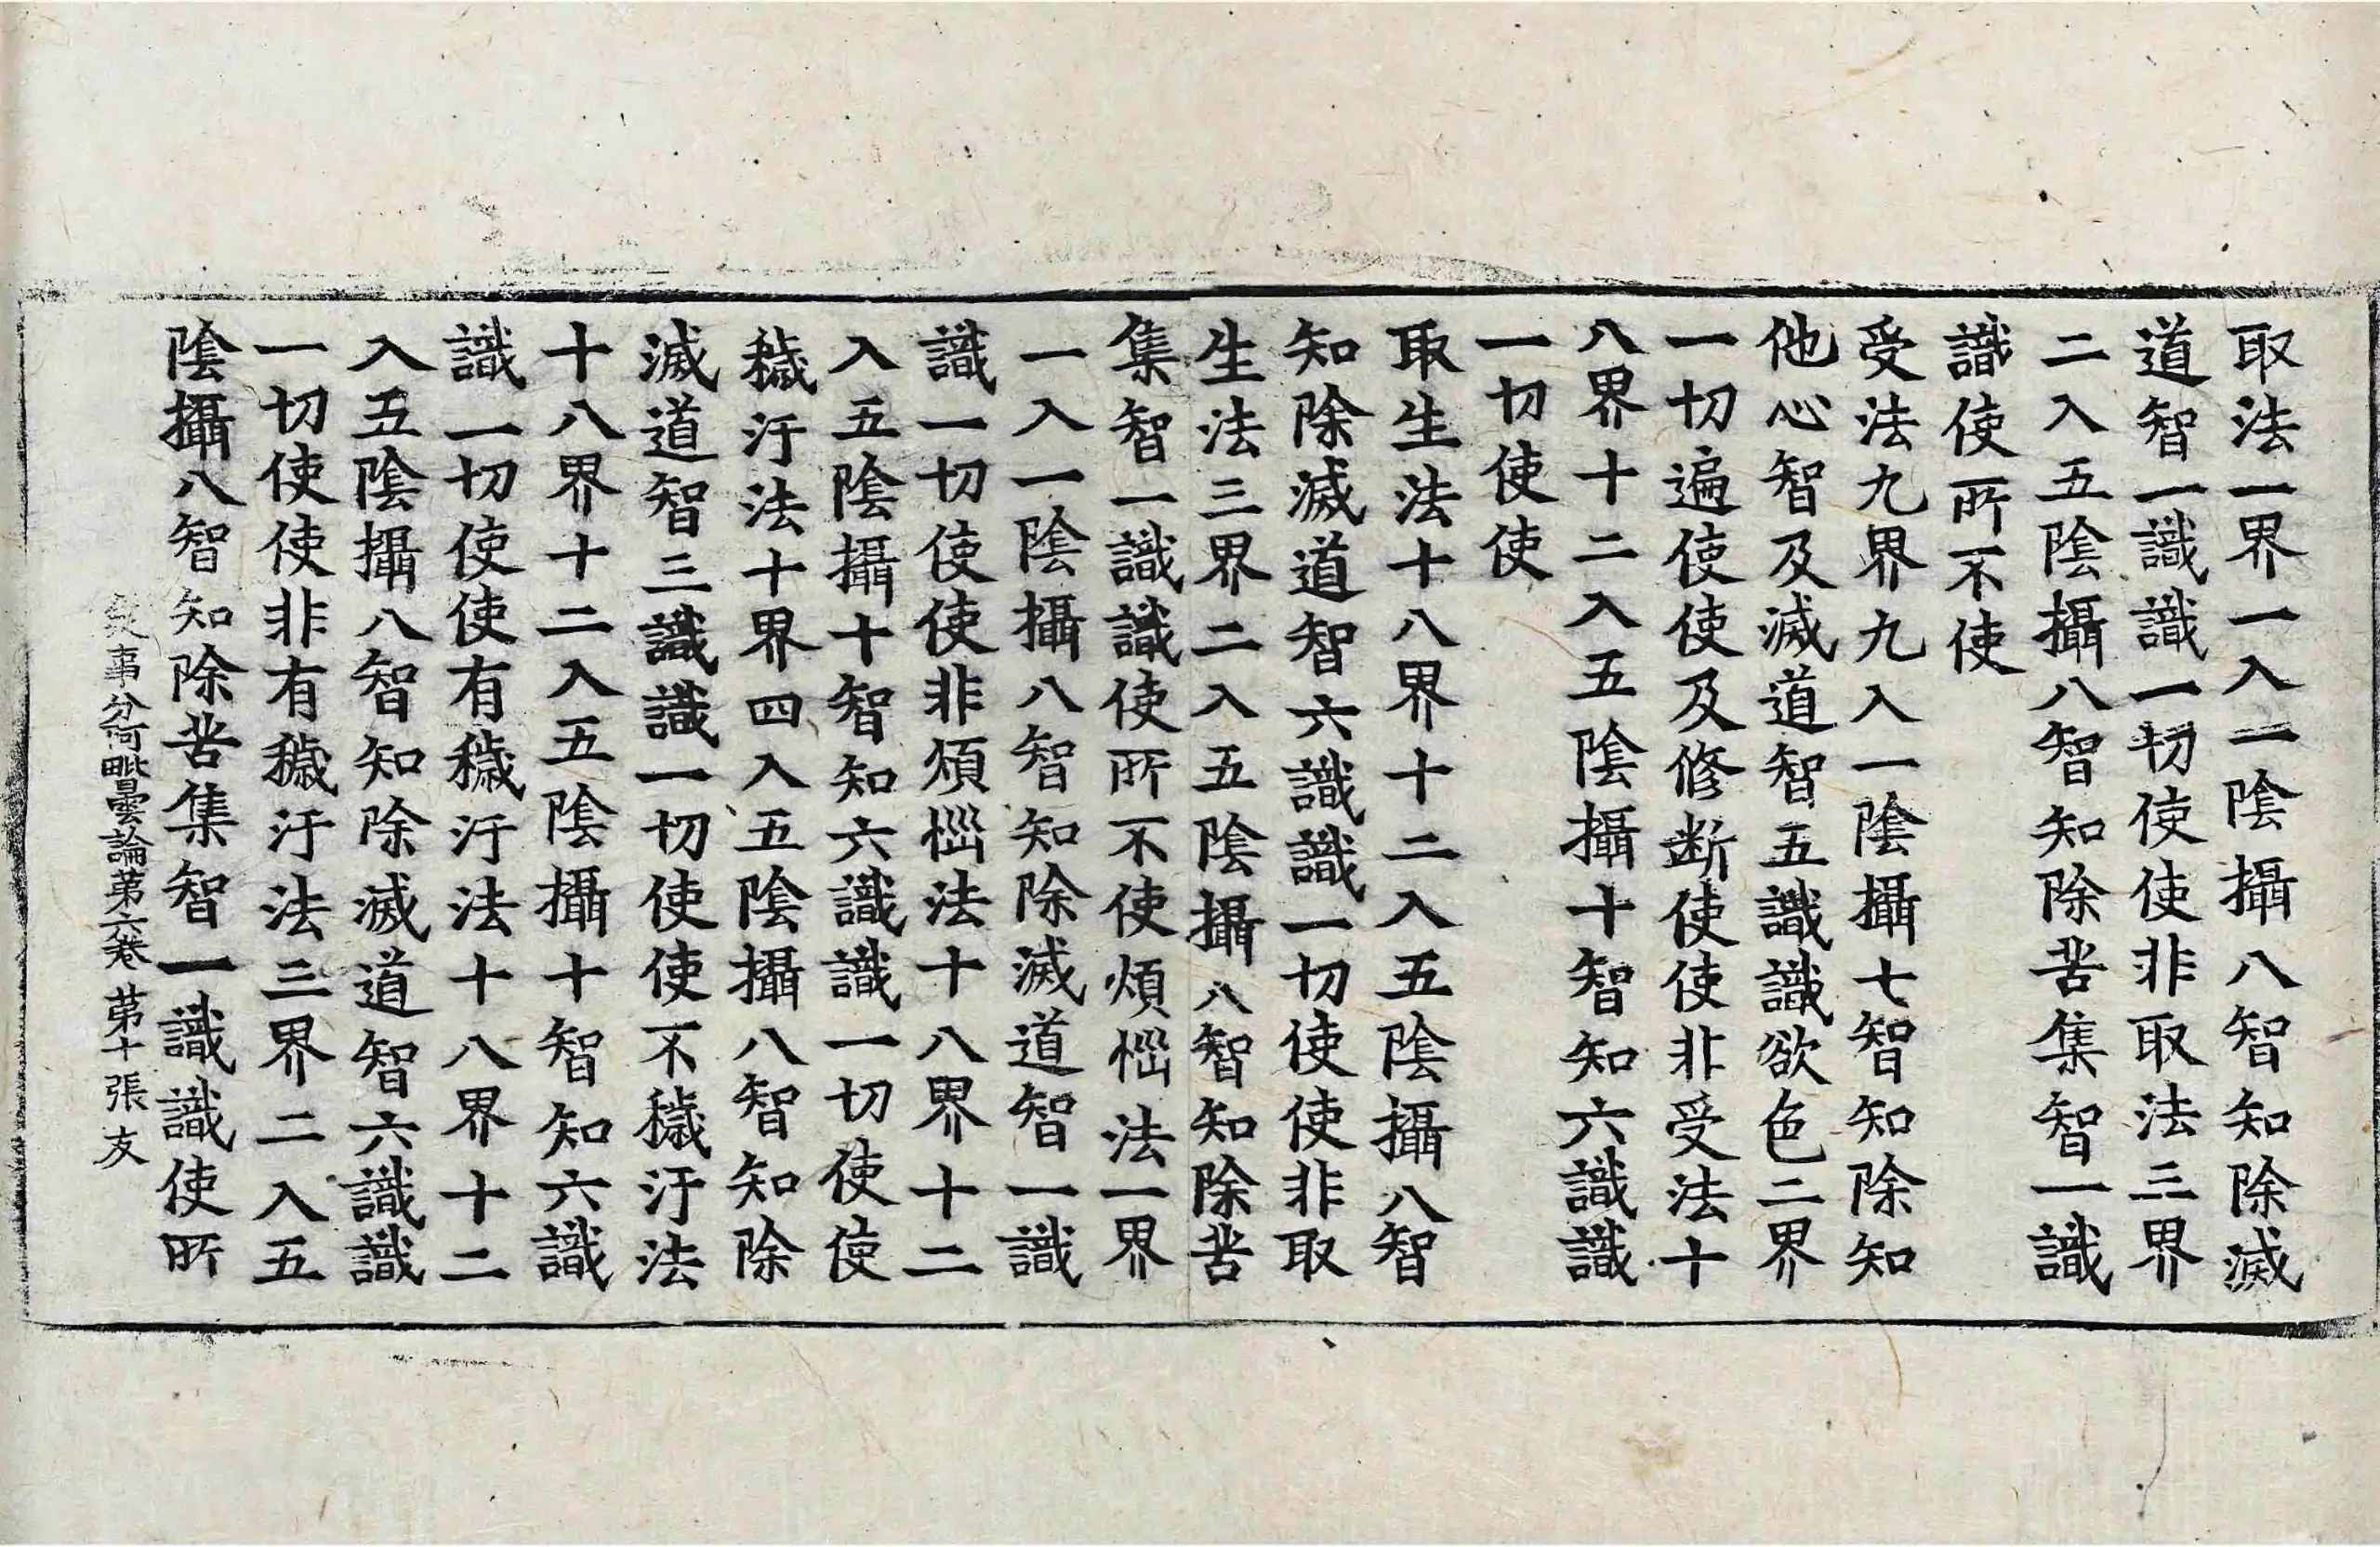 取法一界一入一陰攝八智知除滅
道智一識識一切使使非取法三界
二入五陰攝八智知除苦集智一識
識使所不使
受法九界九入一陰攝七智知除知
他心智及滅道智五識識欲色二界
一切遍使使及修断使使非受法十
八界十二入五陰攝十智知六識識
一切使使
取生法十八界十二入五陰攝八智
知除滅道智六識識一切使使非取
生法三界二入五陰攝八智知除苦
集智一識識使所不使煩惱法一界
一入一陰攝八智知除滅道智一識
識一切使使非煩惱法十八界十二
入五陰攝十智知六識識一切使使
穢汙法十界四入五陰攝八智知除
滅道智三識識一切使使不穢汙法
十八界十二入五陰攝十智知六識
識一切使使有穢汙法十八界十二
入五陰攝八智知除滅道智六識識
一切使使非有穢汙法三界二入五
陰攝八智知除苦集智一識識使所
事分阿毗曇論第六卷 第十張 友